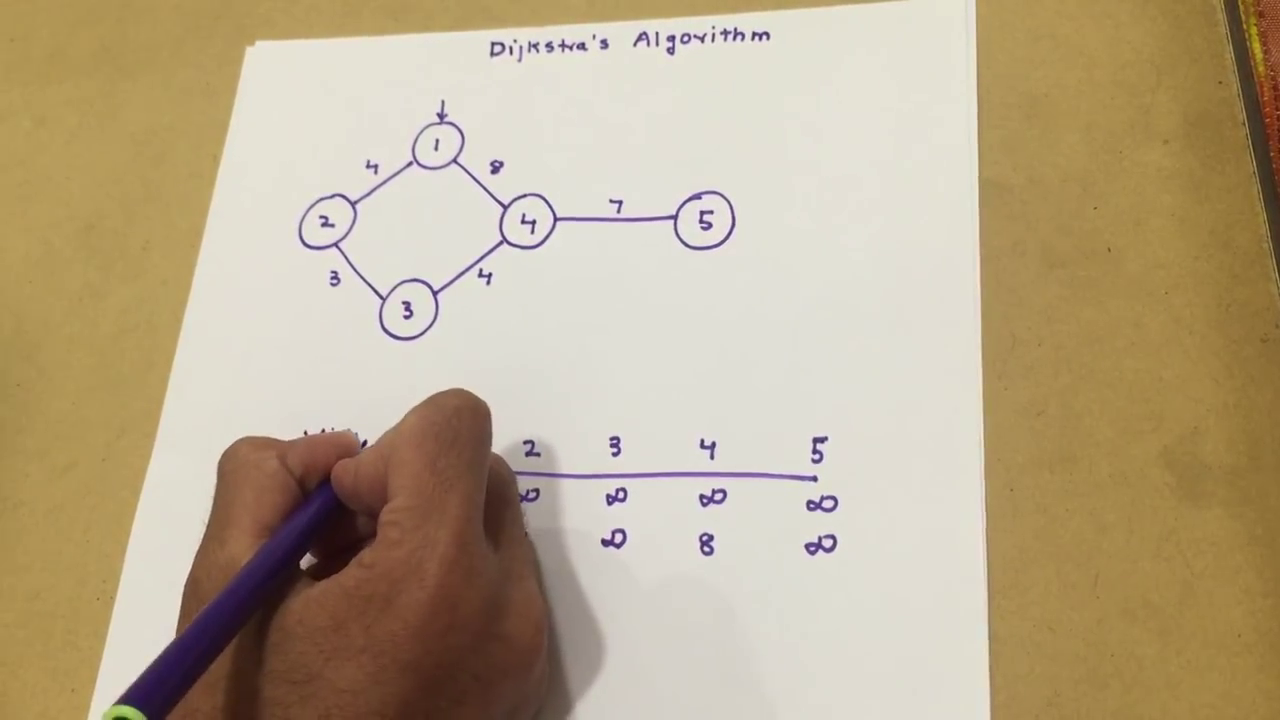 Dijkstra's Algorithm
1
4 8
2 4 7 5
3 4
3
2 3 4 5
∞ ∞ ∞ ∞
∞ 8 ∞